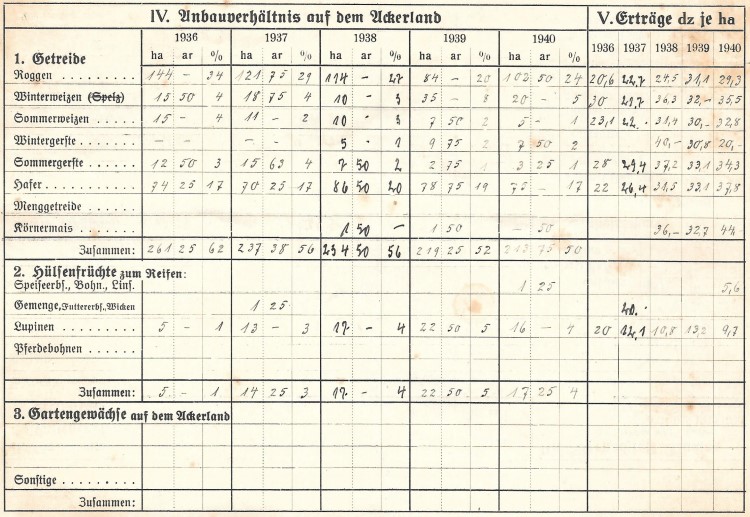 IV. Anbauverhältnis auf dem Ackerland V. Erträge dz je ha
1936 1937 1938 1939 1940 1936 1937 1938 1939 1940
1. Getreide ha ar % ha ar % ha ar % ha ar % ha ar %
Roggen 144 – 34 121 75 29 114 – 27 84 – 20 102 50 24 20,6 22,7 24,5 31,1 29,3
Winterweizen (Spelz) 15 50 4 18 75 4 10 – 3 35 – 8 20 – 5 30 36,3 32,– 35,5
Sommerweizen 15 – 4 11 – 2 10 – 3 7 50 2 5 – 1 23,1 22.– 31,4 30,– 32,8
Wintergerste – – – – 5 – 1 9 75 2 7 50 2 40,– 30,8 20,–
Sommergerste 12 50 3 15 63 4 7 50 2 2 75 1 3 25 1 28 29,4 37,2 33,1 34,3
Hafer 74 25 17 70 25 17 86 50 20 78 75 19 75 – 17 22 26,4 31,5 33,1 37,8
Menggetreide
Körnermais 1 50 – 1 50 – 50 36,– 32,7 44
Zusammen: 261 25 62 237 38 56 234 50 56 219 25 52 213 75 50
2. Hülsenfrüchte zum Reifen:
Speiseerbs., Bohn., Lins. 1 25 5,6
Gemenge, Futtererbs., Wicken 1 25 20.–
Lupinen 5 – 1 13 – 3 17 – 4 22 50 5 16 – 4 20 12,1 10,8 13,2 9,7
Pferdebohnen
Zusammen: 5 – 1 14 25 3 17 – 4 22 50 5 17 25 4
3. Gartengewächse auf dem Ackerland
Sonstige
Zusammen: